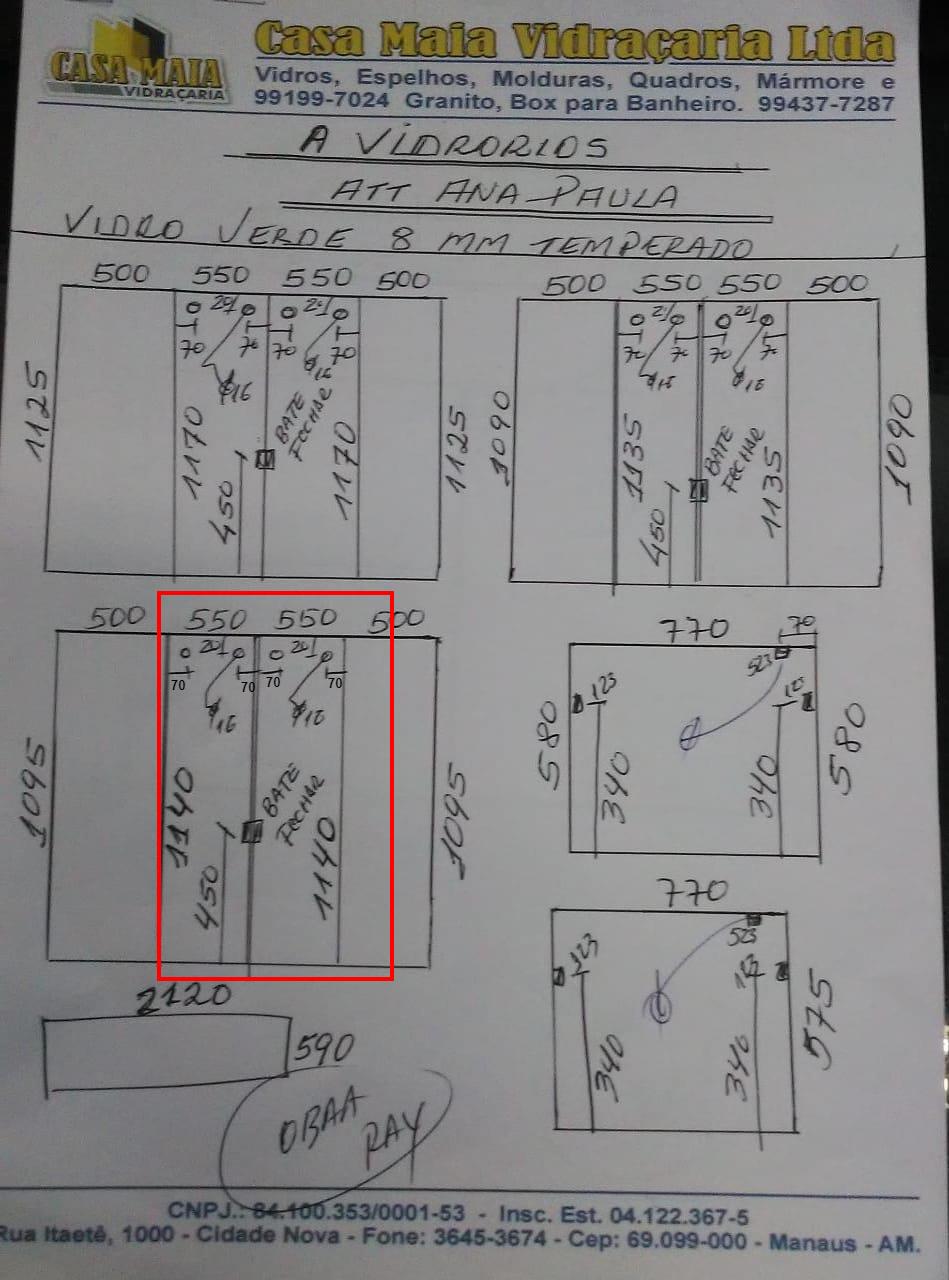 CASA MAIA
VIDRAÇARIA
Casa Maia Vidraçaria Ltda
Vidros, Espelhos, Molduras, Quadros, Mármore e
99199-7024 Granito, Box para Banheiro. 99437-7287
A VIDRORIOS
ATT ANA PAULA
VIDRO VERDE 8 MM TEMPERADO
500 550 550 500
20 20
70 70 70 70
Ø16 Ø16
1125 1170 1170 1125
BATE
FECHAR
450
500 550 550 500
20 20
70 70 70 70
Ø16 Ø16
1090 1135 1135 1090
BATE
FECHAR
450
500 550 550 500
20 20
70 70 70 70
Ø16 Ø16
1095 1140 1140 1095
BATE
FECHAR
450
770 70
523
123
580 340 340 580
770
523
123 123
340 340 575
2120
590
OBAA
RAY
CNPJ.: 84.100.353/0001-53 - Insc. Est. 04.122.367-5
Rua Itaetê, 1000 - Cidade Nova - Fone: 3645-3674 - Cep: 69.099-000 - Manaus - AM.